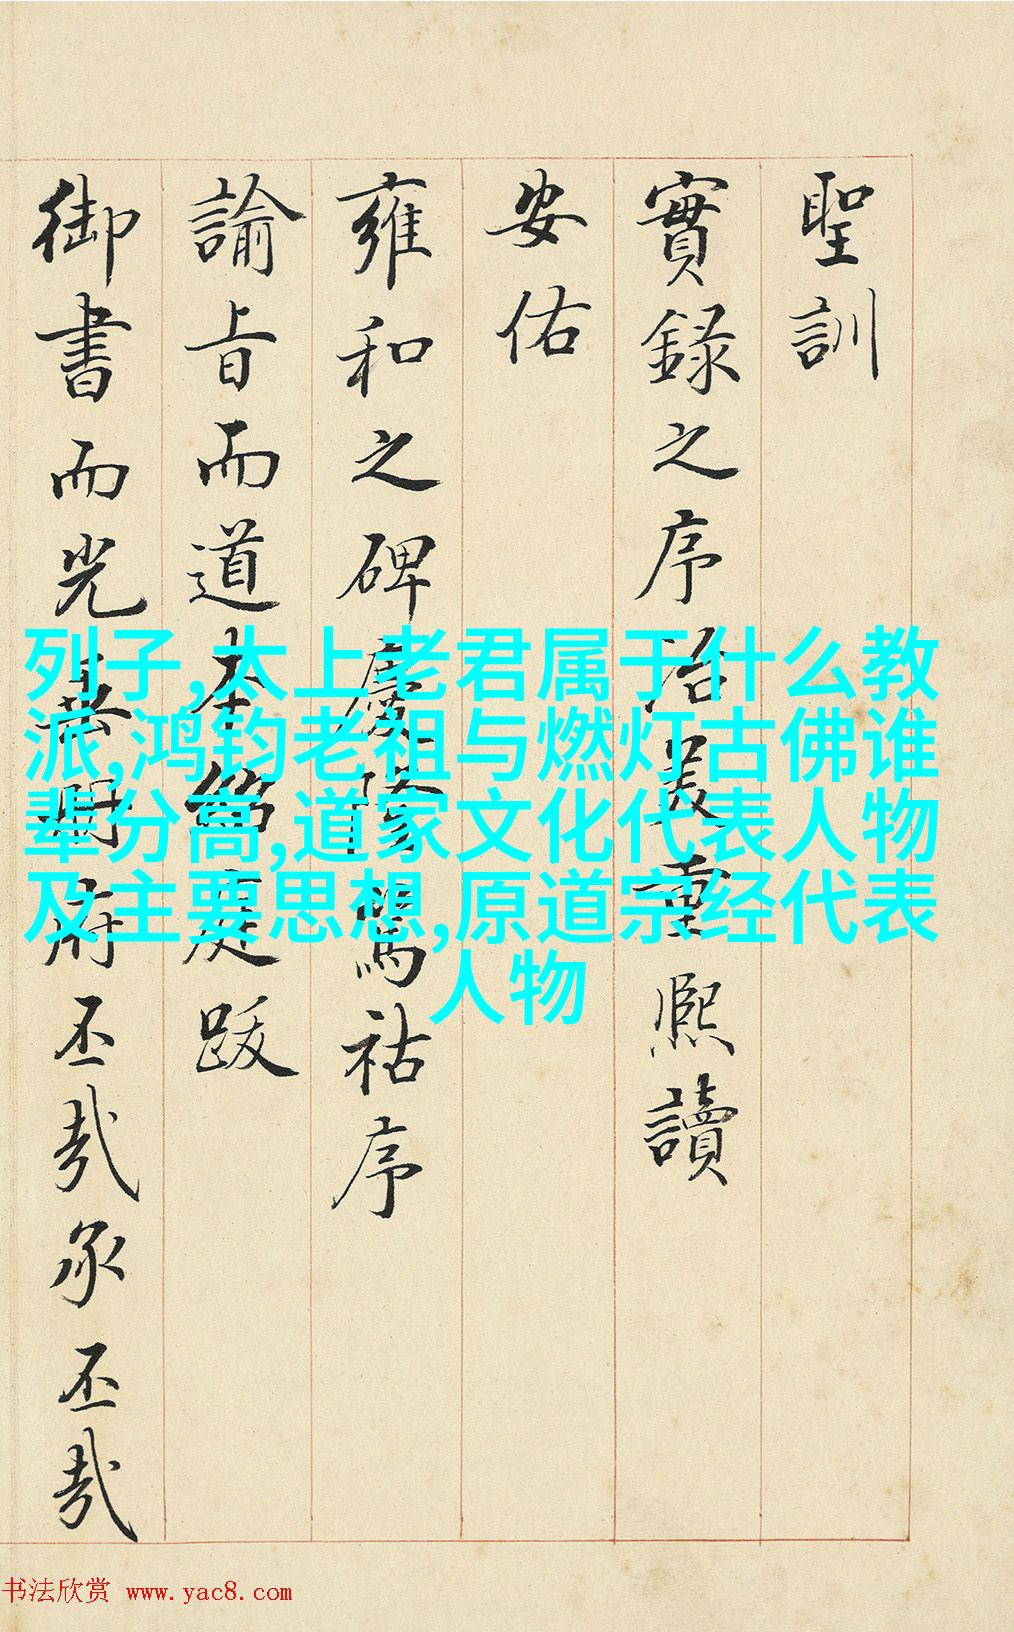 聖訓
實錄之序冶義重熙讀
安佑
雍和之碑慶篤祜序
諭旨而道本庭跋
御書而光府丕哉永丕哉
列子,太上老君属于什么教
派,鸿钧老祖与燃灯古佛谁
辈分高,道家文化代表人物
及主要思想,原道宗经代表
人物
书法欣赏 www.yac8.com